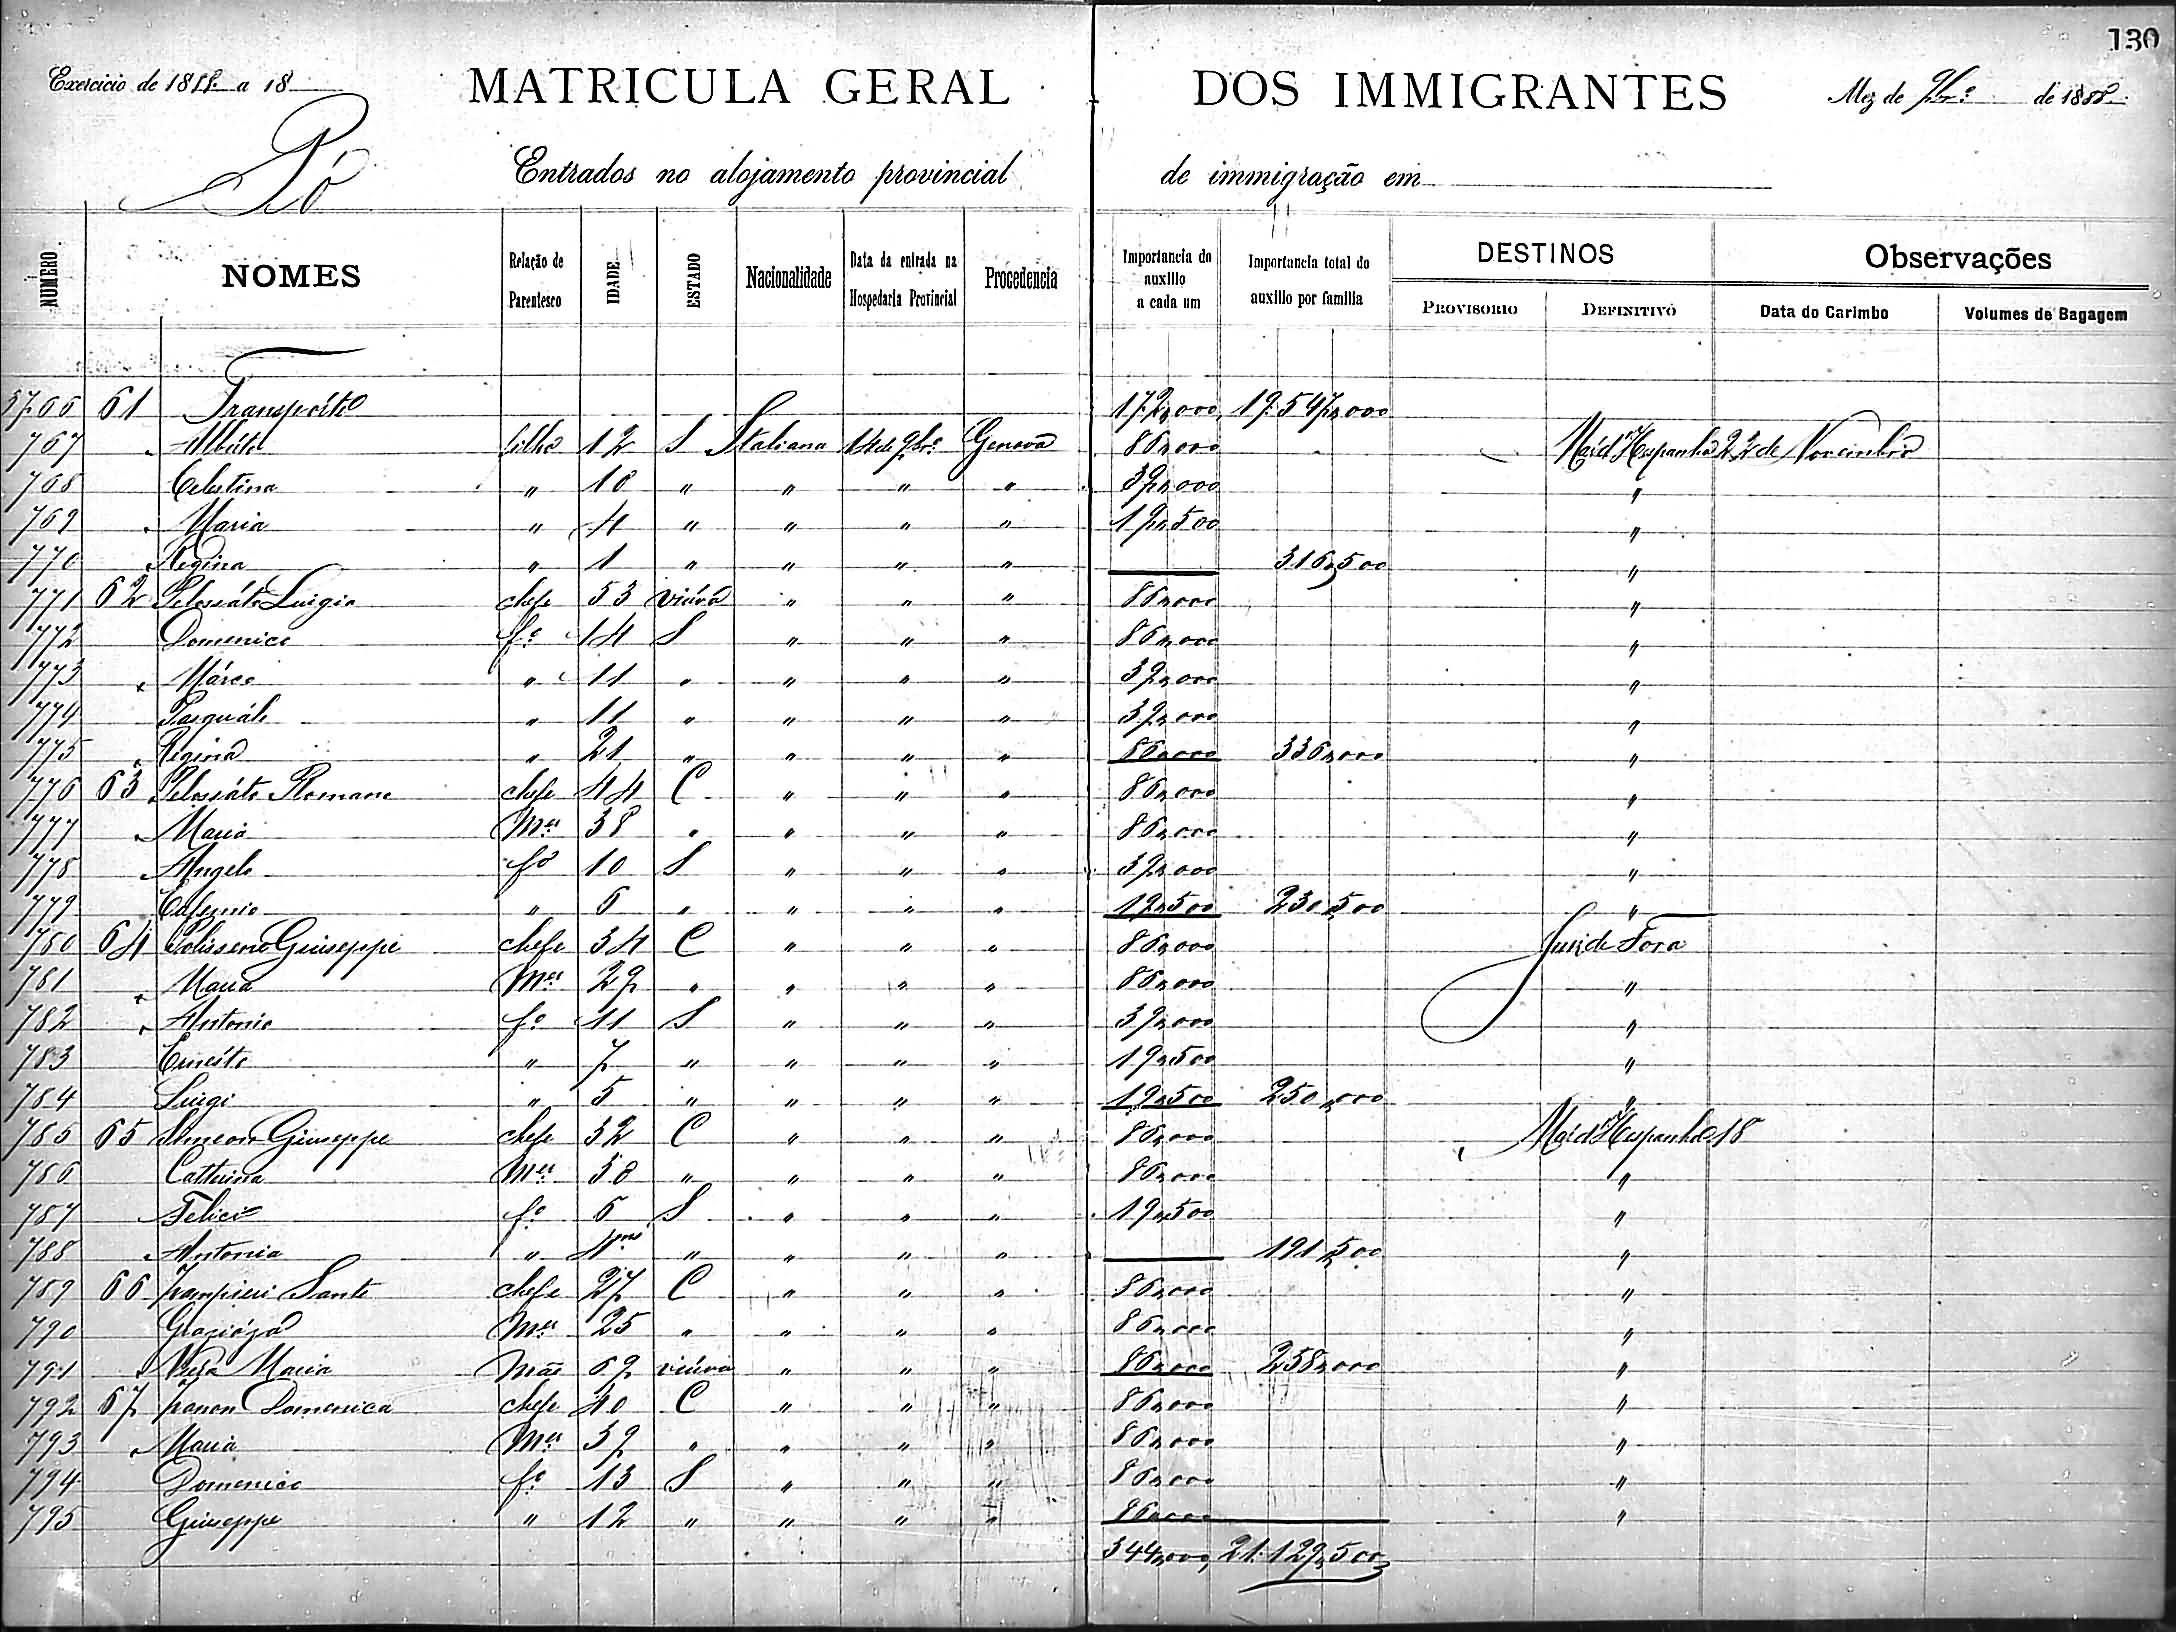 130
Exercicio de 1888 a 18
MATRICULA GERAL DOS IMMIGRANTES
Mez de 9br.º de 1888
Pó
Entrados no alojamento provincial de immigração em
NUMERO NOMES Relação de Parentesco IDADE ESTADO Nacionalidade Data da entrada na Hospedaria Provincial Procedencia Importancia do auxilio a cada um Importancia total do auxilio por familia DESTINOS Observações
PROVISORIO DEFINITIVO Data do Carimbo Volumes de Bagagem
5766 61 Transpórte 172,000 19:547,000
767 " Albérto filho 12 S Italiana 14 de 9br.º Genova 86,000 Mar d'Hespanha 22 de Novembro
768 Celestina " 10 " " " " 39,000 "
769 " Maria " 4 " " " " 19,500 "
770 Regina " 1 " " " " 316,500 "
771 62 Pelosáto Luigia chefe 53 viúva " " " 86,000 "
772 Domenico f.º 14 S " " " 86,000 "
773 " Márco " 11 " " " " 39,000 "
774 Pasquále " 11 " " " " 39,000 "
775 " Regina " 21 " " " " 86,000 336,000 "
776 63 Pelosáto Romano chefe 44 C " " " 86,000 "
777 " Maria M.er 38 " " " " 86,000 "
778 Angelo f.º 10 S " " " 39,000 "
779 " 6 " " " " 19,500 230,500 "
780 64 Giuseppe chefe 34 C " " " 86,000 Juiz de Fora
781 " Maria M.er 29 " " " " 86,000 "
782 " Antonio f.º 11 S " " " 39,000 "
783 Ernésto " 7 " " " " 19,500 "
784 Luigi " 5 " " " " 19,500 250,000 "
785 65 Simeon Giuseppe chefe 32 C " " " 86,000 Mar d'Hespanha 18
786 Catterina M.er 30 " " " " 86,000 "
787 Felice f.º 6 S " " " 19,500 "
788 " Antonia " 4 m.s " " " " 191,500 "
789 66 Zampieri Sante chefe 27 C " " " 86,000 "
790 M.er 25 " " " " 86,000 "
791 " Maria mãe 69 viúva " " " 86,000 258,000 "
792 67 Zanon Domenico chefe 40 C " " " 86,000 "
793 " Maria M.er 39 " " " " 86,000 "
794 Domenico f.º 13 S " " " 86,000 "
795 Giuseppe " 12 " " " " 86,000 "
344,000 21:129,500